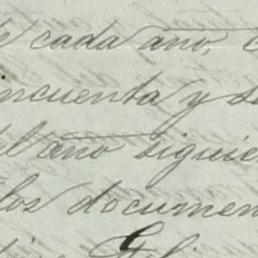 de cada año, c
incuenta y s
del año siguie
los documen